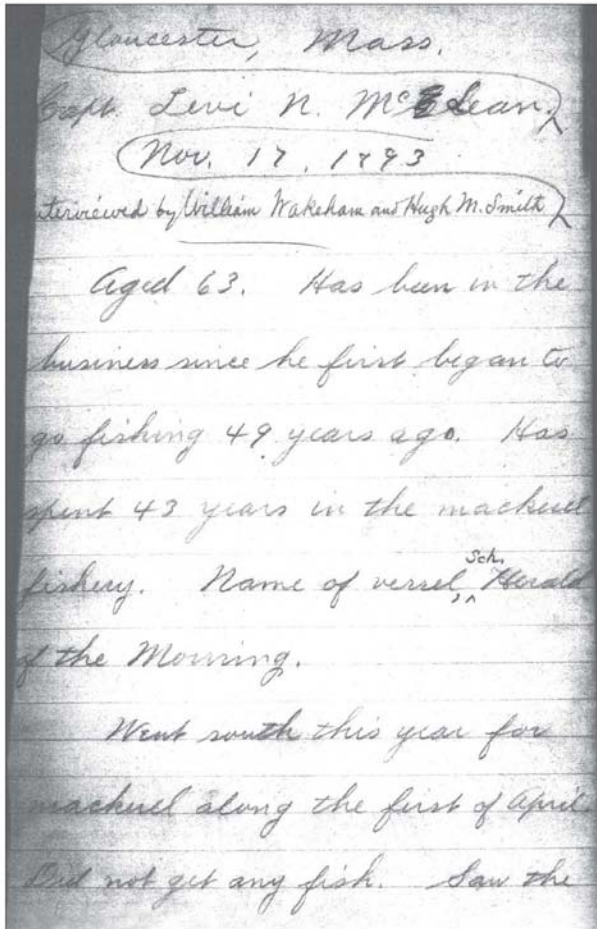 Gloucester, Mass.
Capt. Levi N. McLean,
Nov. 17, 1893
Interviewed by William Wakeham and Hugh M. Smith
Aged 63. Has been in the
business since he first began to
go fishing 49 years ago. Has
spent 43 years in the mackerel
fishery. Name of vessel, Sch. Herald
of the Morning.
Went south this year for
mackerel along the first of April.
Did not get any fish. Saw the